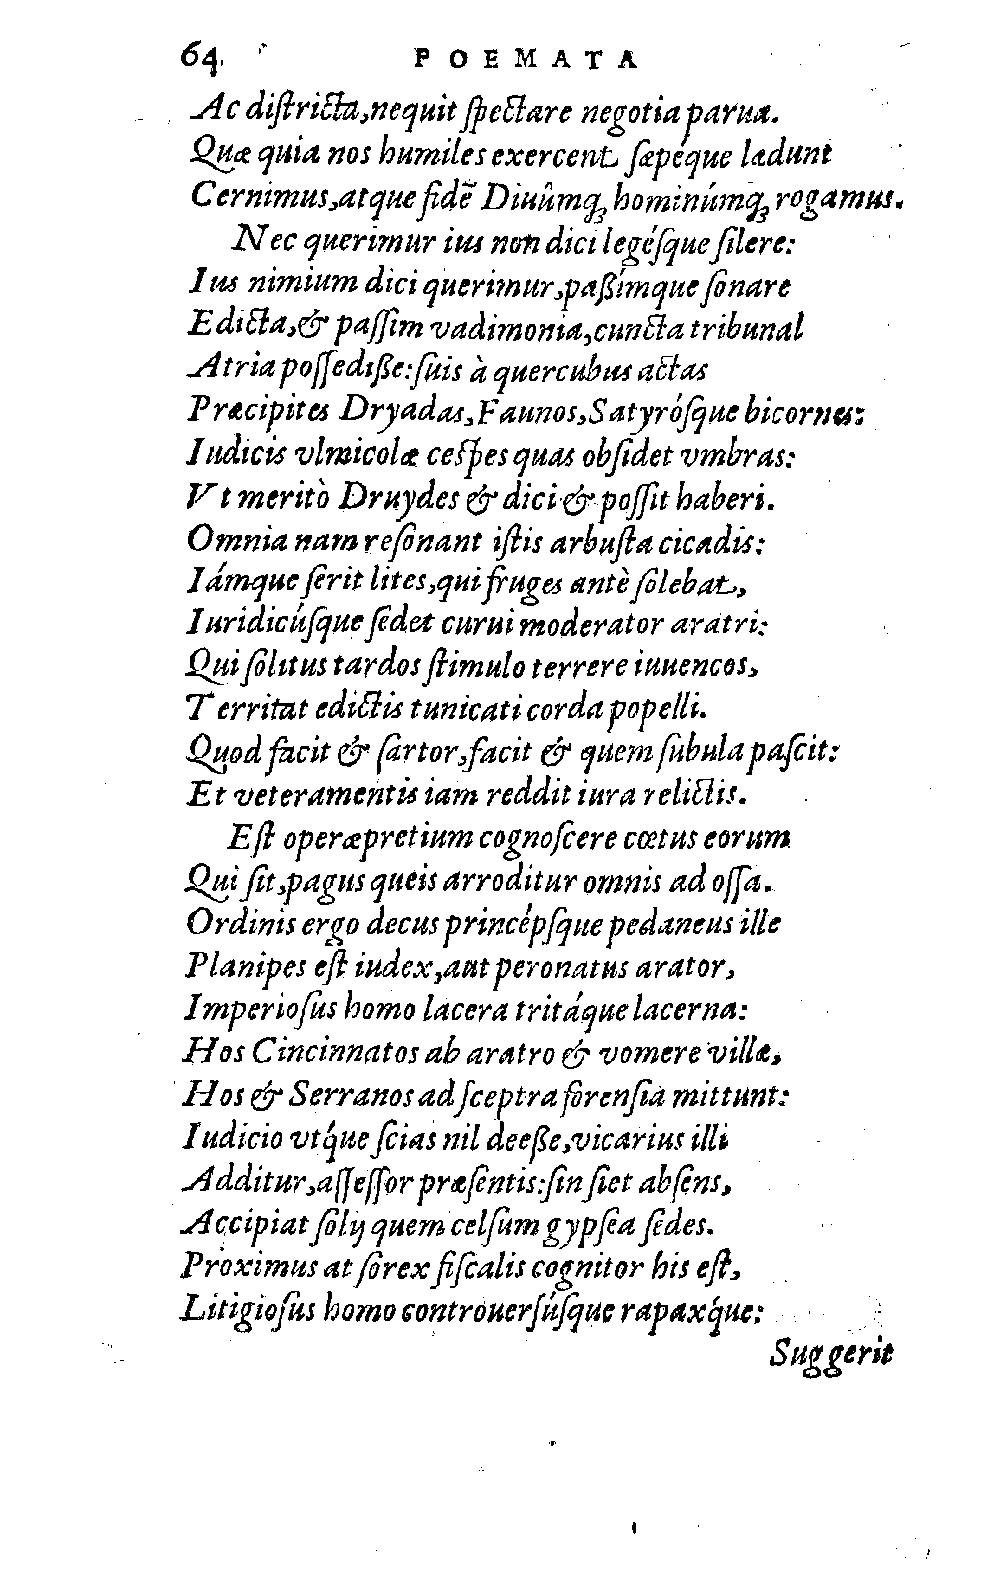 64. POEMATA
Ac diſtricta, nequit ſpectare negotia paruæ.
Quæ quia nos humiles exercent ſæpéque lædunt
Cernimus, atque fidē Diuûmq; hominúmq; rogamus.
Nec querimur ius non dici legéſque ſilere:
Ius nimium dici querimur, paßímque ſonare
Edicta, & paſſim vadimonia, cuncta tribunal
Atria poſſediße: ſuis à quercubus actas
Præcipites Dryadas, Faunos, Satyróſque bicornes:
Iudicis vlmicolæ ceſpes quas obſidet vmbras:
Vt meritò Druydes & dici & poſſit haberi.
Omnia nam reſonant iſtis arbuſta cicadis:
Iámque ſerit lites, qui fruges antè ſolebat,
Iuridicúſque ſedet curui moderator aratri:
Qui ſolitus tardos ſtimulo terrere iuuencos,
Territat edictis tunicati corda popelli.
Quod facit & ſartor, facit & quem ſubula paſcit:
Et veteramentis iam reddit iura relictis.
Eſt operæpretium cognoſcere cœtus eorum
Qui ſit, pagus queis arroditur omnis ad oſſa.
Ordinis ergo decus princépſque pedaneus ille
Planipes eſt iudex, aut peronatus arator,
Imperioſus homo lacera tritáque lacerna:
Hos Cincinnatos ab aratro & vomere villæ,
Hos & Serranos ad ſceptra forenſia mittunt:
Iudicio vtq́ue ſcias nil deeße, vicarius illi
Additur, aſſeſſor præſentis: ſin ſiet abſens,
Accipiat ſolij quem celſum gypſea ſedes.
Proximus at ſorex fiſcalis cognitor his eſt,
Litigioſus homo controuerſúſque rapaxq́ue:
Suggerit